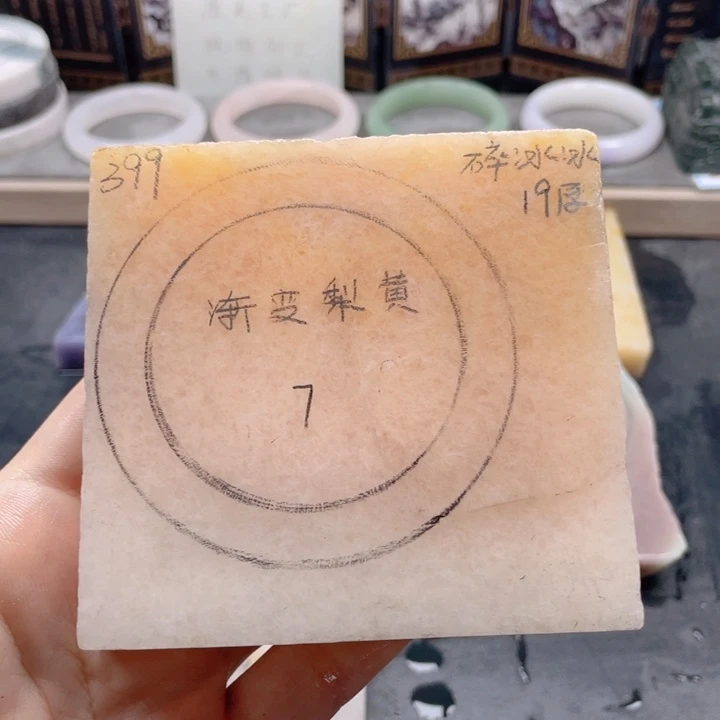 399
碎冰冰
19厚
渐变梨黄
7